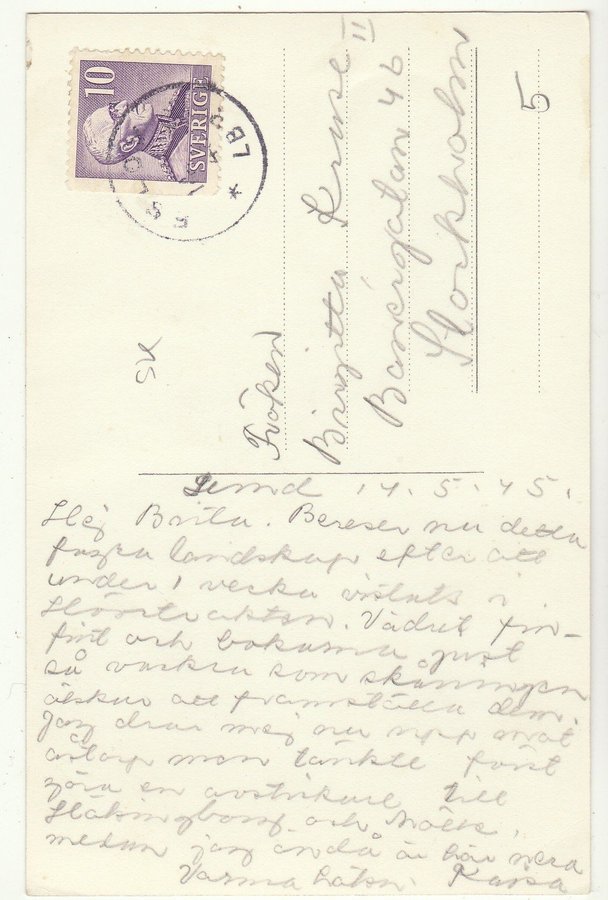 10
SVERIGE
ESLÖV
LBR
5
SK
Fröken
Birgitta Kruse II
Banérgatan 46
Stockholm
Lund 14.5.45.
Hej Brita. Bereser nu detta
fagra landskap efter att
under 1 vecka vistats i
Hörstrakten. Vädret fin-
fint och bokarna just
så vackra som skåningen
älskar att framställa dem.
Jag drar mej nu upp mot
men tänkte först
göra en avstickare till
Hälsingborg och Mölle,
medan jag ändå är här nera
Varma hälsn. Kajsa